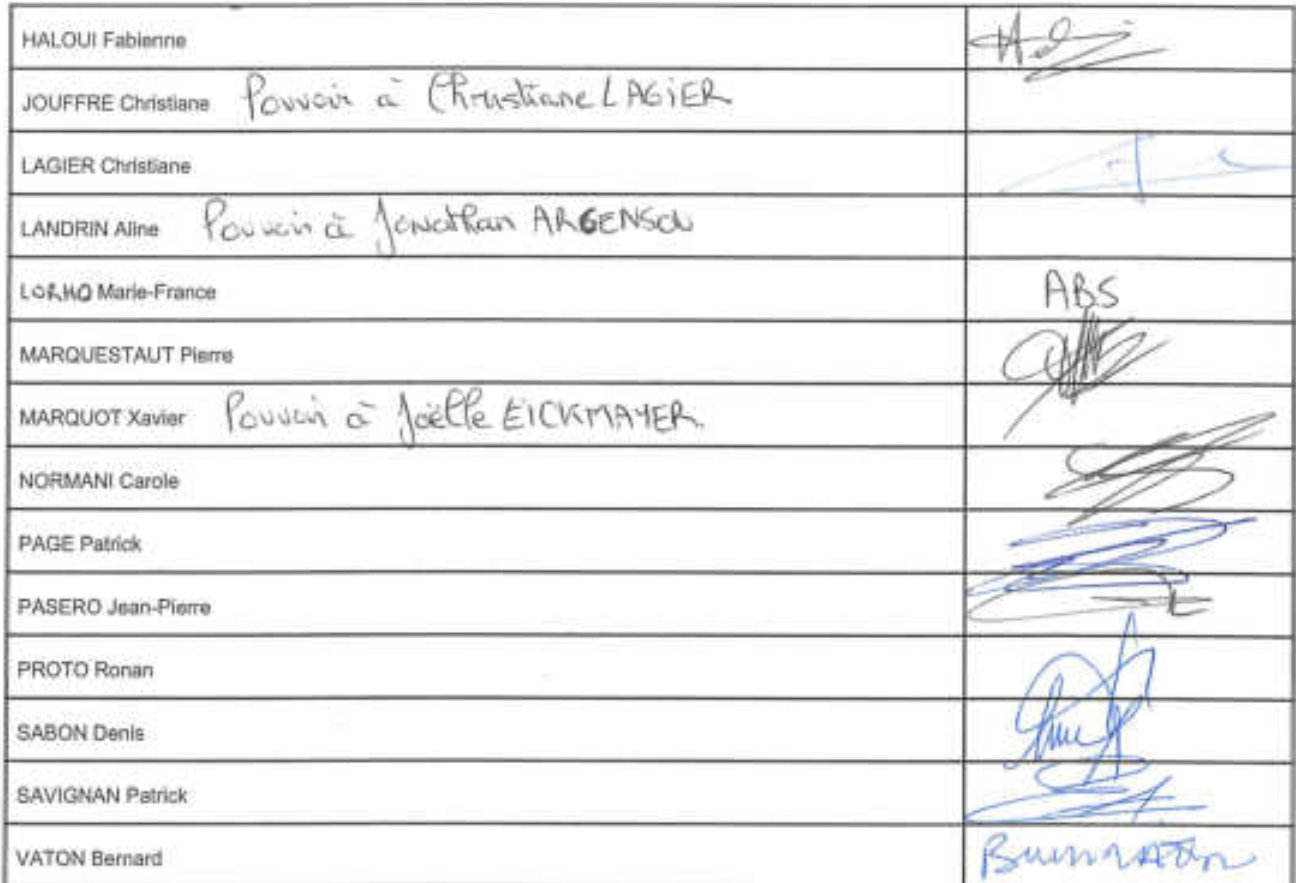 HALOUI Fabienne
JOUFFRE Christiane Pouvoir à Christiane LAGiER
LAGIER Christiane
LANDRIN Aline Pouvoir à Jonathan ARGENSON
LORHO Marie-France ABS
MARQUESTAUT Pierre
MARQUOT Xavier Pouvoir à Joëlle EiCKMAYER
NORMANI Carole
PAGE Patrick
PASERO Jean-Pierre
PROTO Ronan
SABON Denis
SAVIGNAN Patrick
VATON Bernard